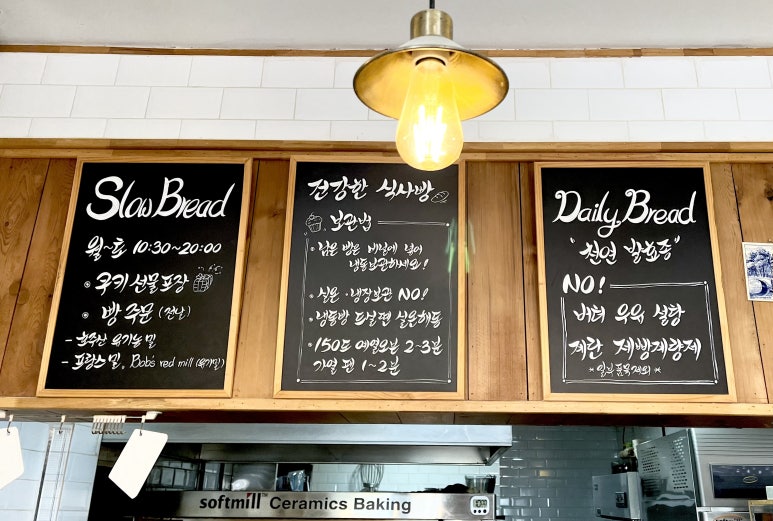 Slow Bread
월~토 10:30~20:00
쿠키 선물포장
빵 주문 (전날)
- 호주산 유기농밀
- 프랑스밀, Bob's red mill (유기밀)
건강한 식사빵
보관법
남은 빵은 비닐에 넣어
냉동보관하세요!
실온·냉장보관 NO!
냉동빵 드실땐 실온해동
150도 예열오븐 2~3분
가열 팬 1~2분
Daily, Bread
"천연 발효종"
NO!
버터 우유 설탕
계란 제빵개량제
*일부품목제외*
softmill Ceramics Baking